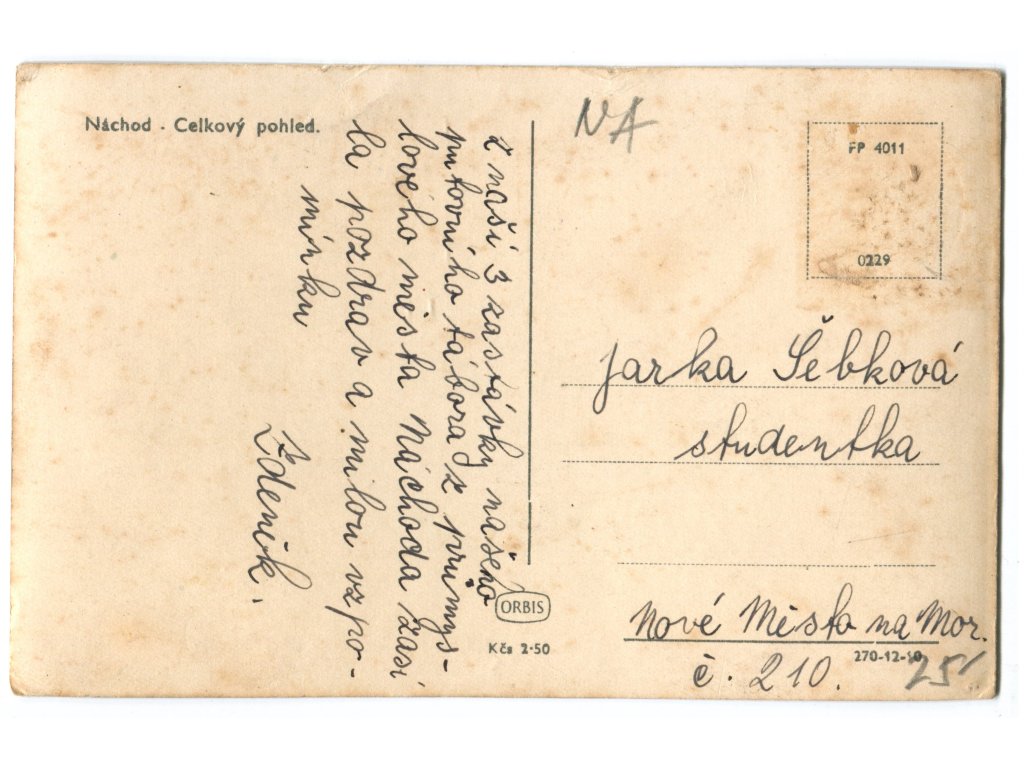 Náchod - Celkový pohled.
Z naší 3 zastávky našeho
putovního tábora z průmys-
lového města Náchoda zasí
la pozdrav a milou vzpo-
mínku
Zdeněk.
NA
FP 4011
0229
Jarka Šébková
studentka
Nové Město na Mor.
č. 210.
ORBIS
Kčs 2·50
270-12-10
25%